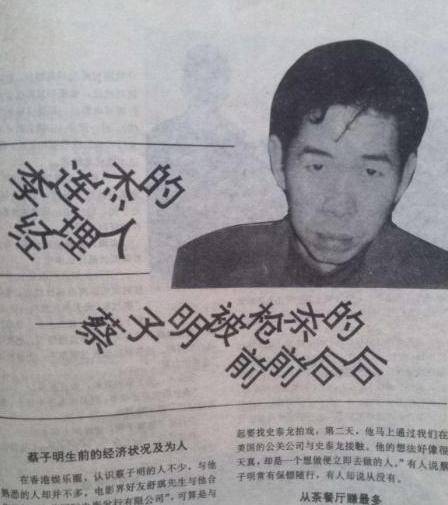 李连杰的
经理人
——蔡子明被枪杀的
前前后后
蔡子明生前的经济状况及为人
在香港娱乐圈，认识蔡子明的人不少，与他
熟悉的人却并不多。电影界好友舒琪先生与他合
发行有限公司”，可算是与
起要找史泰龙拍戏，第二天，他马上通过我们在
美国的公关公司与史泰龙接触。他的想法好像很
天真，却是一个想做便立即去做的人。”有人说蔡
子明常有保镖随行，有人却说从没有。
从茶餐厅赚最多